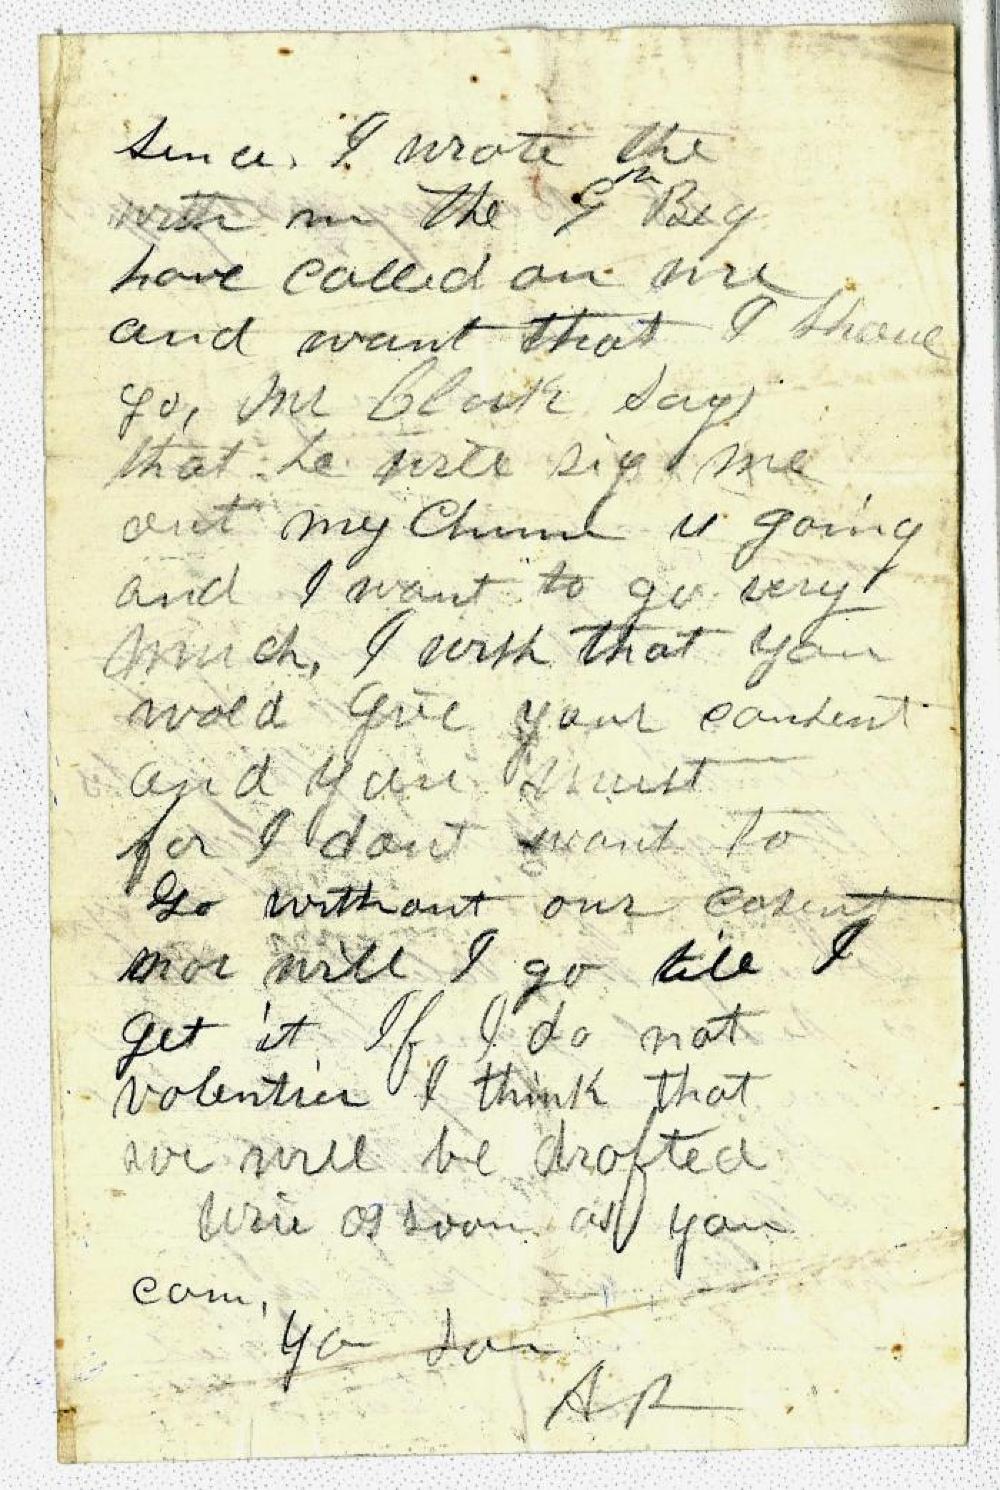 since. I wrote the
with in the 9th Beg
have called on me
and want that I
go, Mr Clark says
that he will sig me
out my Chum is going
and I want to go very
much, I wish that you
wold give your consent
and you must
for I dont want to
Go without our cosent
nor will I go till I
get it If I do not
volentier I think that
we will be drafted
as soon as you
can,
Yo son
A R